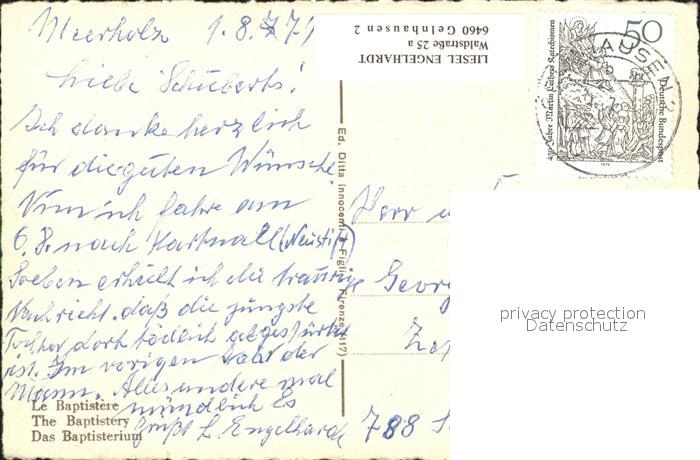 Meerholz 1.8.79
Liebe Schuberts!
Ich danke herzlich
für die guten Wünsche
Nun ich fahre am
6.8. nach Hartmall (Neustift)
Soeben erhielt ich die traurige
Nachricht, daß die jüngste
Tochter dort tödlich abgestürzt
ist. Im vorigen Jahr der
Mann. Alles andere mal
mündlich Es
grüßt L. Engelhardt
Le Baptistère
The Baptistery
Das Baptisterium
LIESEL ENGELHARDT
Waldstraße 25 a
6460 Gelnhausen 2
Ed. Ditta Innocenti Figli Firenze
50
450 Jahre Martin Luthers Katechismen
Deutsche Bundespost
1979
Herr u
Georg
788 S
privacy protection
Datenschutz